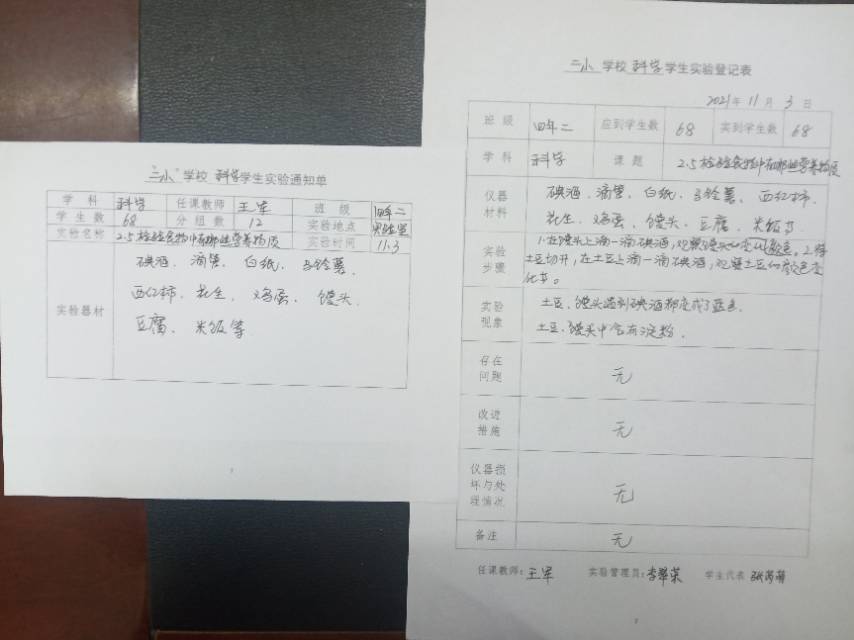 二小 学校 科学 学生实验通知单
学科 科学 任课教师 王军 班级 四年二
学生数 68 分组数 12 实验地点 实验室
实验名称 2.5检验食物中有哪些营养物质 实验时间 11.3
实验器材
碘酒、滴管、白纸、马铃薯、
西红柿、花生、鸡蛋、馒头、
豆腐、米饭等
二小 学校 科学 学生实验登记表
2021年11月3日
班级 四年二 应到学生数 68 实到学生数 68
学科 科学 课题 2.5检验食物中有哪些营养物质
仪器材料
碘酒、滴管、白纸、马铃薯、西红柿、
花生、鸡蛋、馒头、豆腐、米饭等
实验步骤
1.在馒头上滴一滴碘酒,观察馒头的变化颜色。2.将
土豆切开,在土豆上滴一滴碘酒,观察土豆的颜色变
化等。
实验现象
土豆、馒头遇到碘酒都变成了蓝色
土豆、馒头中含有淀粉.
存在问题 无
改进措施 无
仪器损坏与处理情况 无
备注 无
任课教师:王军 实验管理员:李翠荣 学生代表